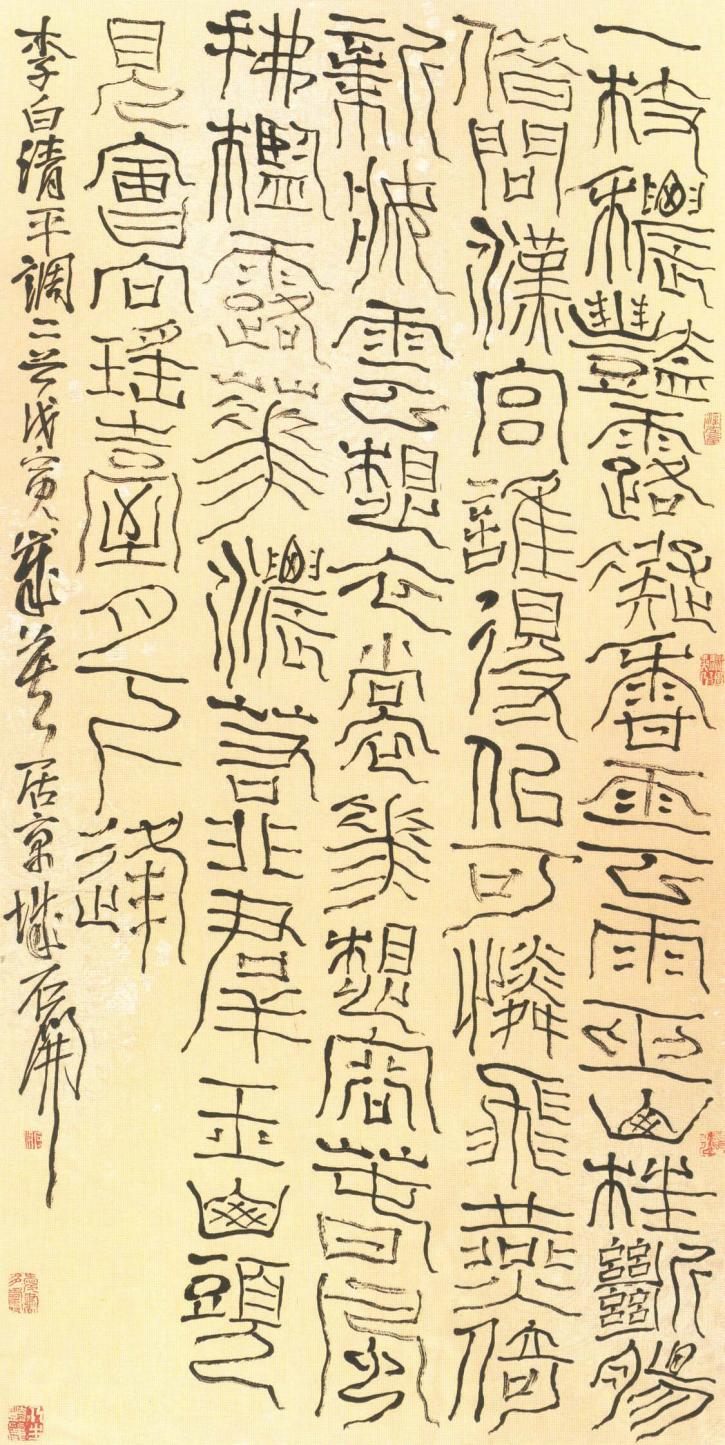 一枝穠豔露凝香雲雨巫山枉斷腸
借問漢宮誰得似可憐飛燕倚
新妝雲想衣裳花想容春風
拂檻露華濃若非羣玉山頭
見會向瑤臺月下逢
李白清平調二首戊寅歲暮居京城石開